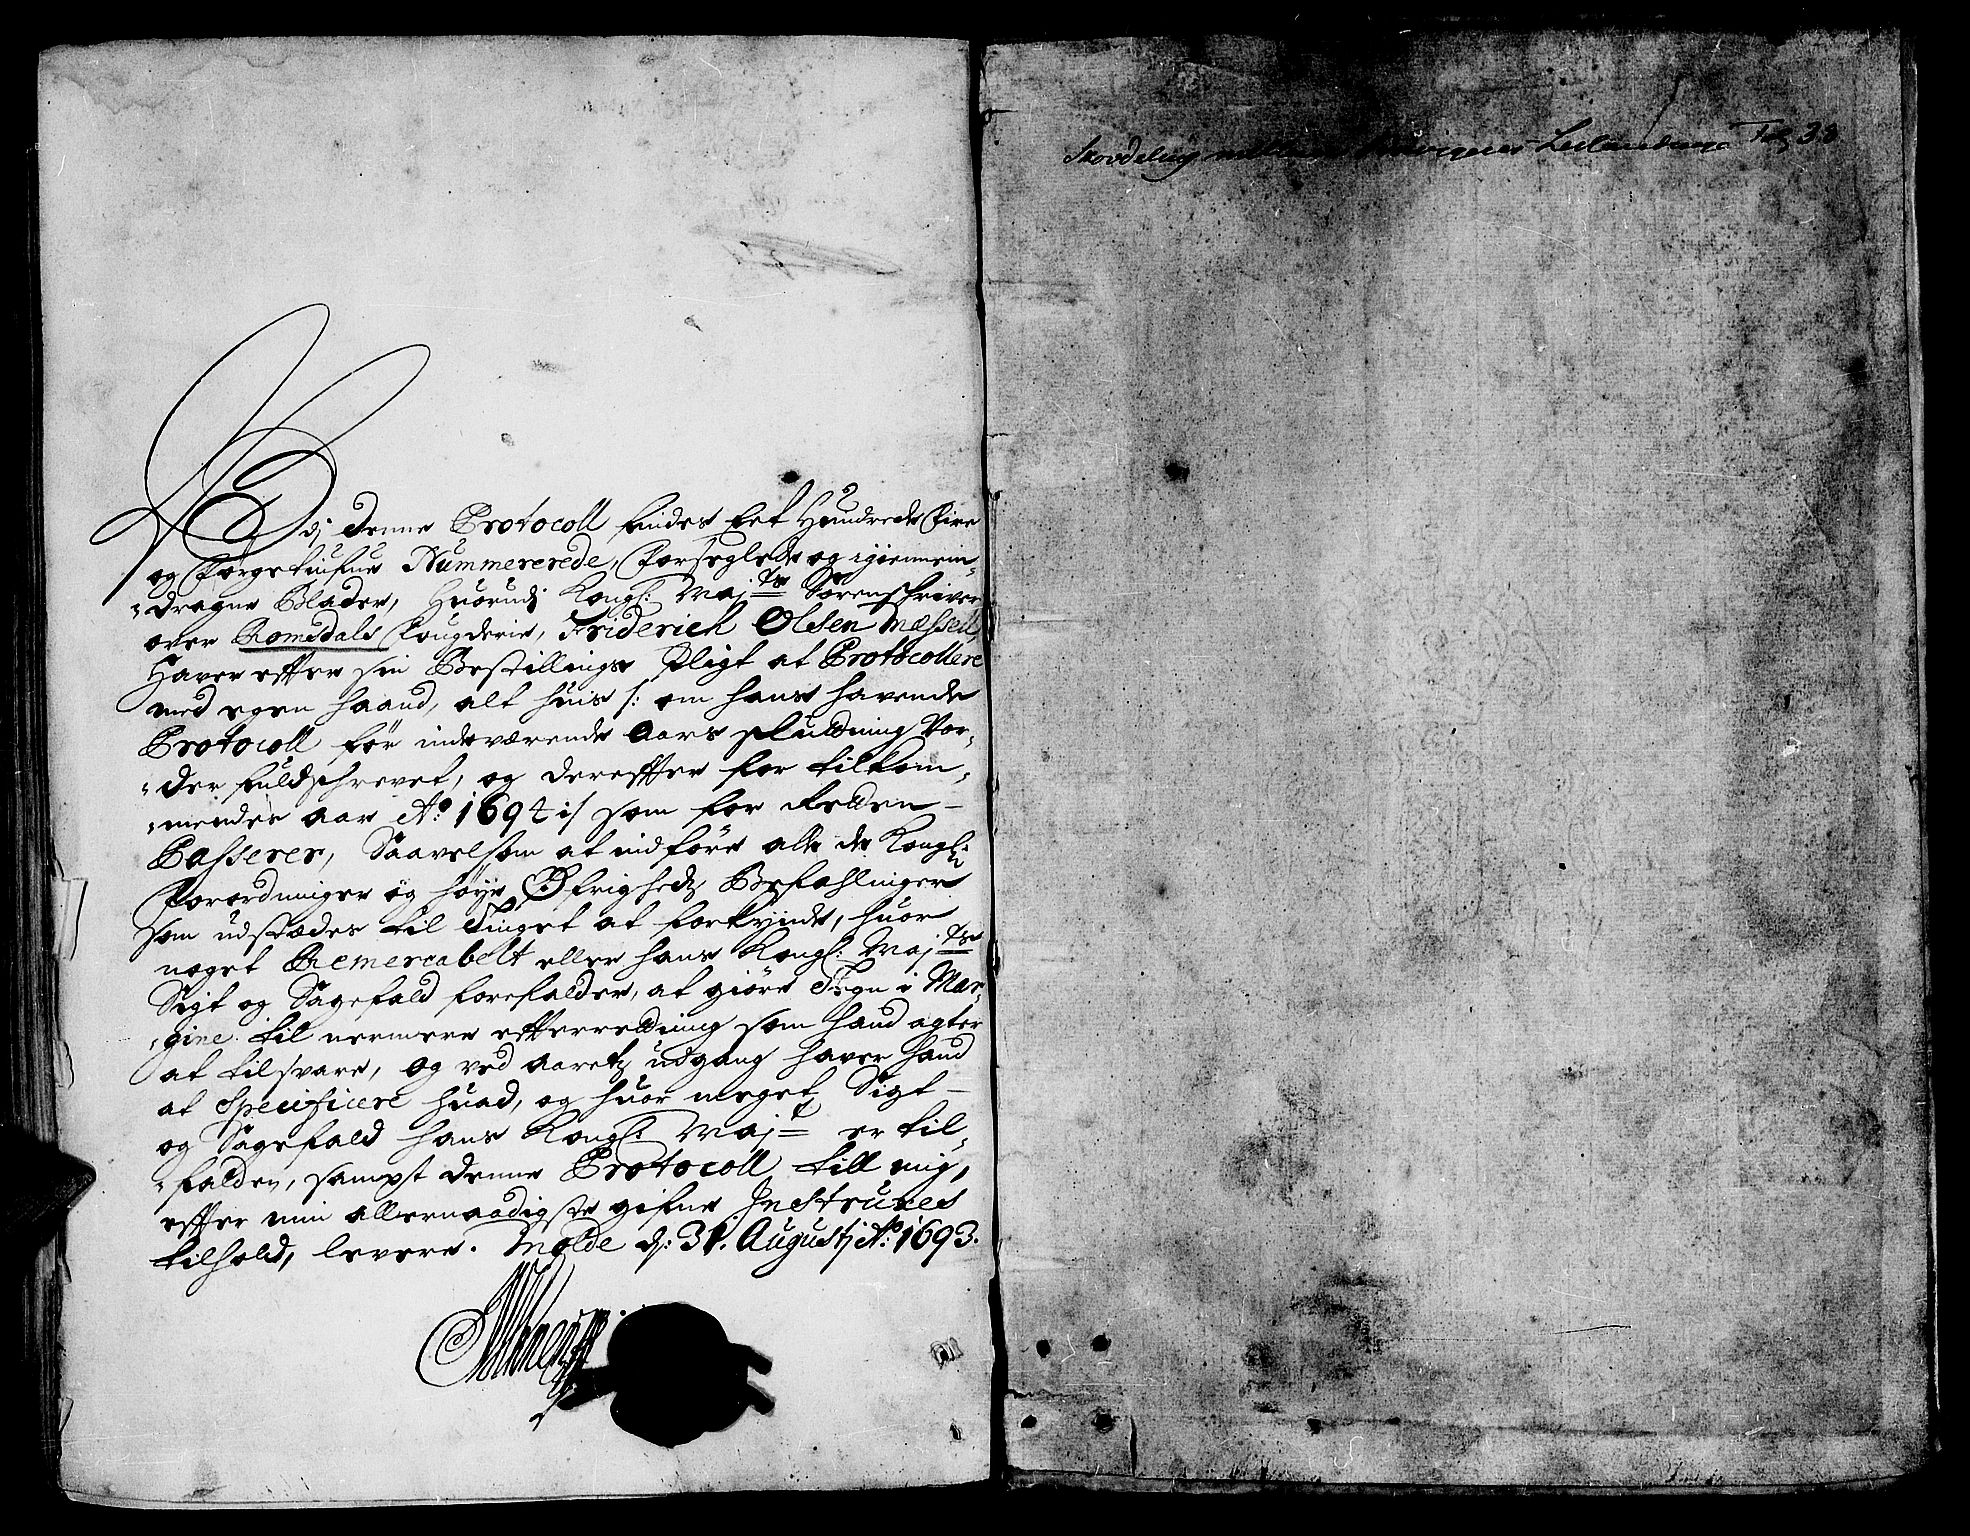 Udj denne Protocoll findes Eet Hundrede Fire
og Förgetiufue Nummererede, Forseglede og igiennem-
dragne Blader, Huorudj Kongl: Maj:ts Sörenschriver
over Romsdals Fougderie, Friderich Olsen Mæssell,
Haver efter sin Bestillings Pligt at Protocollere
med egen haand, alt huis /: om hans havende
Protocoll för indeværende Aars Sluttning Vor-
der fuldschrevet, og derefter for tilkom-
mendes Aar Ao: 1694 :/ som for Retten
Passerer, Saavelsom at indföre alle de Kongl:
Forordninger og höye Öfrigheds Befahlinger
som udstædes til Tinget at forkynde, huor
noget Remercabelt eller hans Kongl: Maj:ts
Sigt og Sagefald forefalder, at giöre Tegn i Mar-
gine til nermere efterretning som hand agter
at tilsvare, og ved aaretz udgang haver hand
at Specificere huad, og huor meget Sigt
og Sagefald hans Kongl: Maj:t er til-
falden, sampt denne Protocoll till mig,
efter min allernaadigste gifne Instruxes
tilhold, levere. Molde dj: 31. Augustj Ao: 1693.
Skovdeling mellem Fol 38